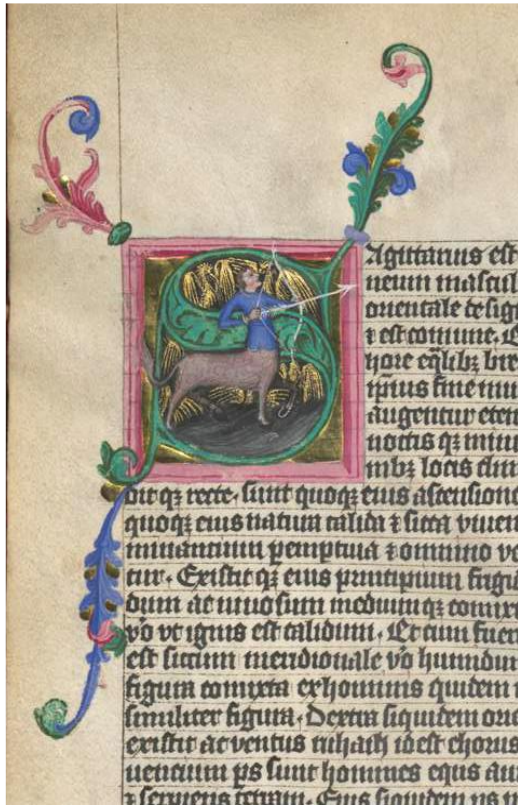 Agittarius est
neum mascul
orientale desig
⁊ est comune. E
hore eq̄lib; bre
ipsius fine mu
augentur eten
noctis q; minu
mb; locis dim
dit q; recte. sunt quoq; eius ascensione
quoq; eius natura calida ⁊ sicca viuen
⁊ omnino ve
tur. Existit q; eius principium frigi
dum ac niuosum medium q; comixt
v̄o vt ignis est calidum. Et cum fuer
est siccum meridionale v̄o humidum
figura comixta ex hominis quidem
similiter figura. Dextra siquidem orie
existit ac ventus id est chorus
uencium ps sunt homines equs aut
⁊ serpens Eius siquidem